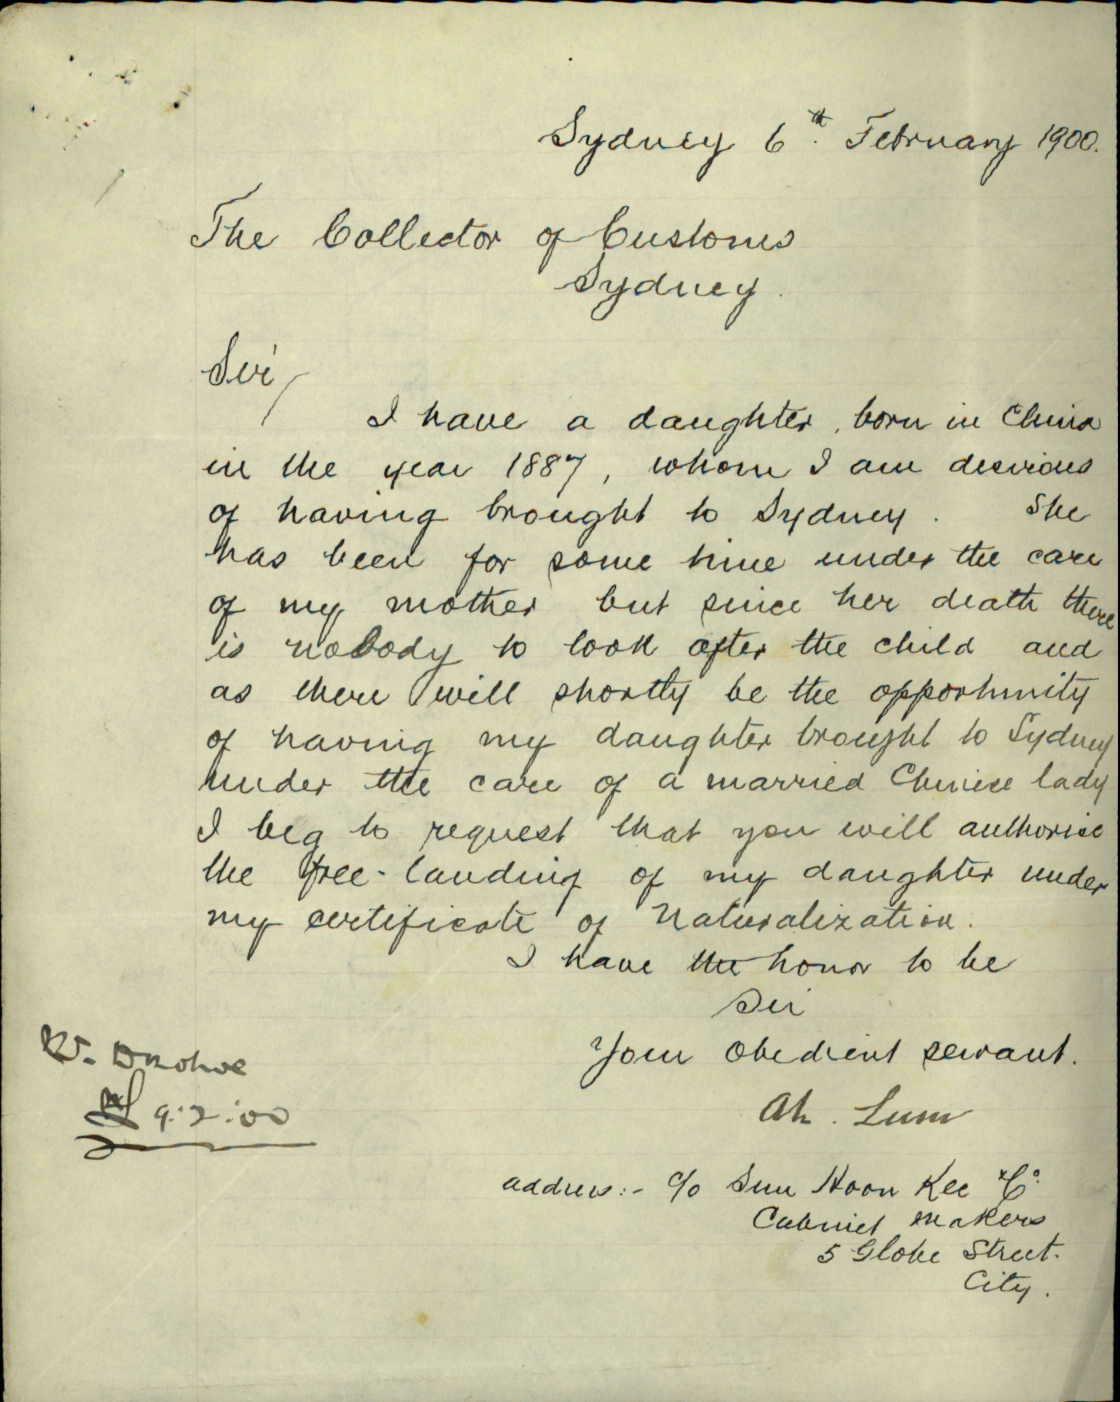 Sydney 6th February 1900.
The Collector of Customs
Sydney.
Sir,
I have a daughter, born in China
in the year 1887, whom I am desirous
of having brought to Sydney. She
has been for some time under the care
of my mother but since her death there
is nobody to look after the child and
as there will shortly be the opportunity
of having my daughter brought to Sydney
under the care of a married Chinese lady
I beg to request that you will authorise
the free-landing of my daughter under
my certificate of Naturalization.
I have the honor to be
Sir
Your obedient servant.
Ah. Lum
Donohoe
9:2:00
address:- c/o Sun Hoon Kee & Co
Cabinet Makers
5 Globe Street.
City.